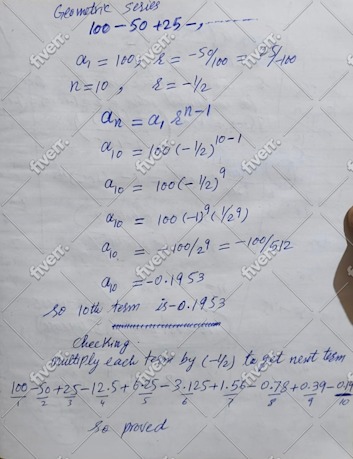 Geometric Series
100 - 50 + 25 - , ------
a₁ = 100, r = -50/100 = -5/100
n = 10, r = -1/2
aₙ = a₁ rⁿ⁻¹
a₁₀ = 100 (-1/2)¹⁰⁻¹
a₁₀ = 100(-1/2)⁹
a₁₀ = 100 (-1)⁹ (1/2⁹)
a₁₀ = -100/2⁹ = -100/512
a₁₀ = -0.1953
So 10th term is -0.1953
Checking.
multiply each term by (-1/2) to get next term
100 - 50 + 25 - 12.5 + 6.25 - 3.125 + 1.56 - 0.78 + 0.39 - 0.19
1 2 3 4 5 6 7 8 9 10
So proved